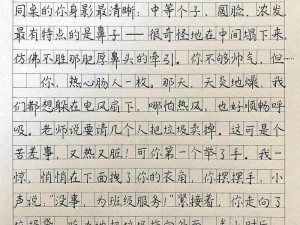 同桌的你身影最清晰：中等个子，圆脸，浓发，
最有特点的是鼻子——很奇怪地在中间塌下来，
仿佛不胜那肥厚鼻头的牵引。你不够帅气，但一
你，热心肠人一枚。那天，天炎地燥，我
们都想躲在电风扇下，哪怕热风，也好顺畅呼
吸。老师说要请几个人把垃圾卖掉。这可是个
苦差事，又热又脏！可你第一个举了手。我一
惊，悄悄在下面拽了你的衣角，你摆摆手，小
声说："没事，为班级服务！"紧接着，你走向了